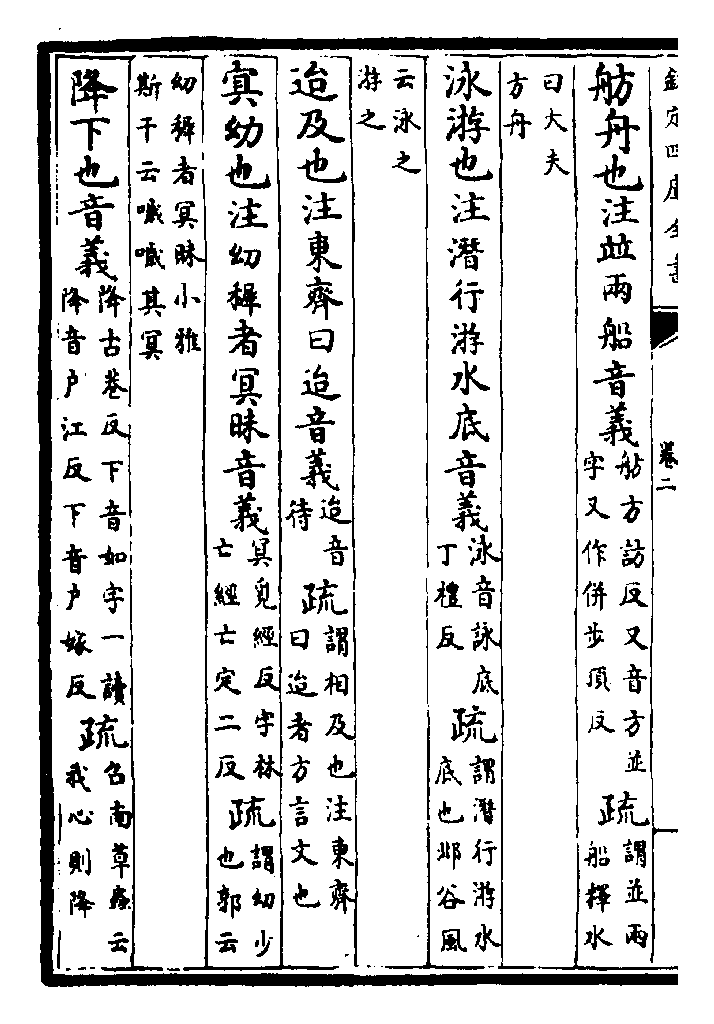 欽定四庫全書
卷二
舫舟也注竝兩船音義舫方訪反又音方並
字又作併步頂反疏謂並兩
船釋水
曰大夫
方舟
泳游也注潛行游水底音義泳音詠底
丁禮反疏謂潛行游水
底也邶谷風
云泳之
游之
迨及也注東齊曰迨音義迨音
待疏謂相及也注東齊
曰迨者方言文也
冥幼也注幼穉者冥昧音義冥覓經反字林
亡經亡定二反疏謂幼少
也郭云
幼穉者冥昧小雅
斯干云噦噦其冥
降下也音義降古巷反下音如字一讀
降音户江反下音户嫁反疏召南草蟲云
我心則降